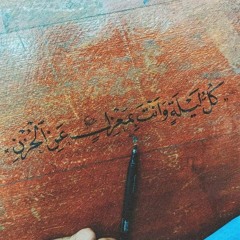 كُلُّ لَيْلَةٍ وَأَنْتَ بِمَعْزِلٍ عَنِ الْحُزْنِ